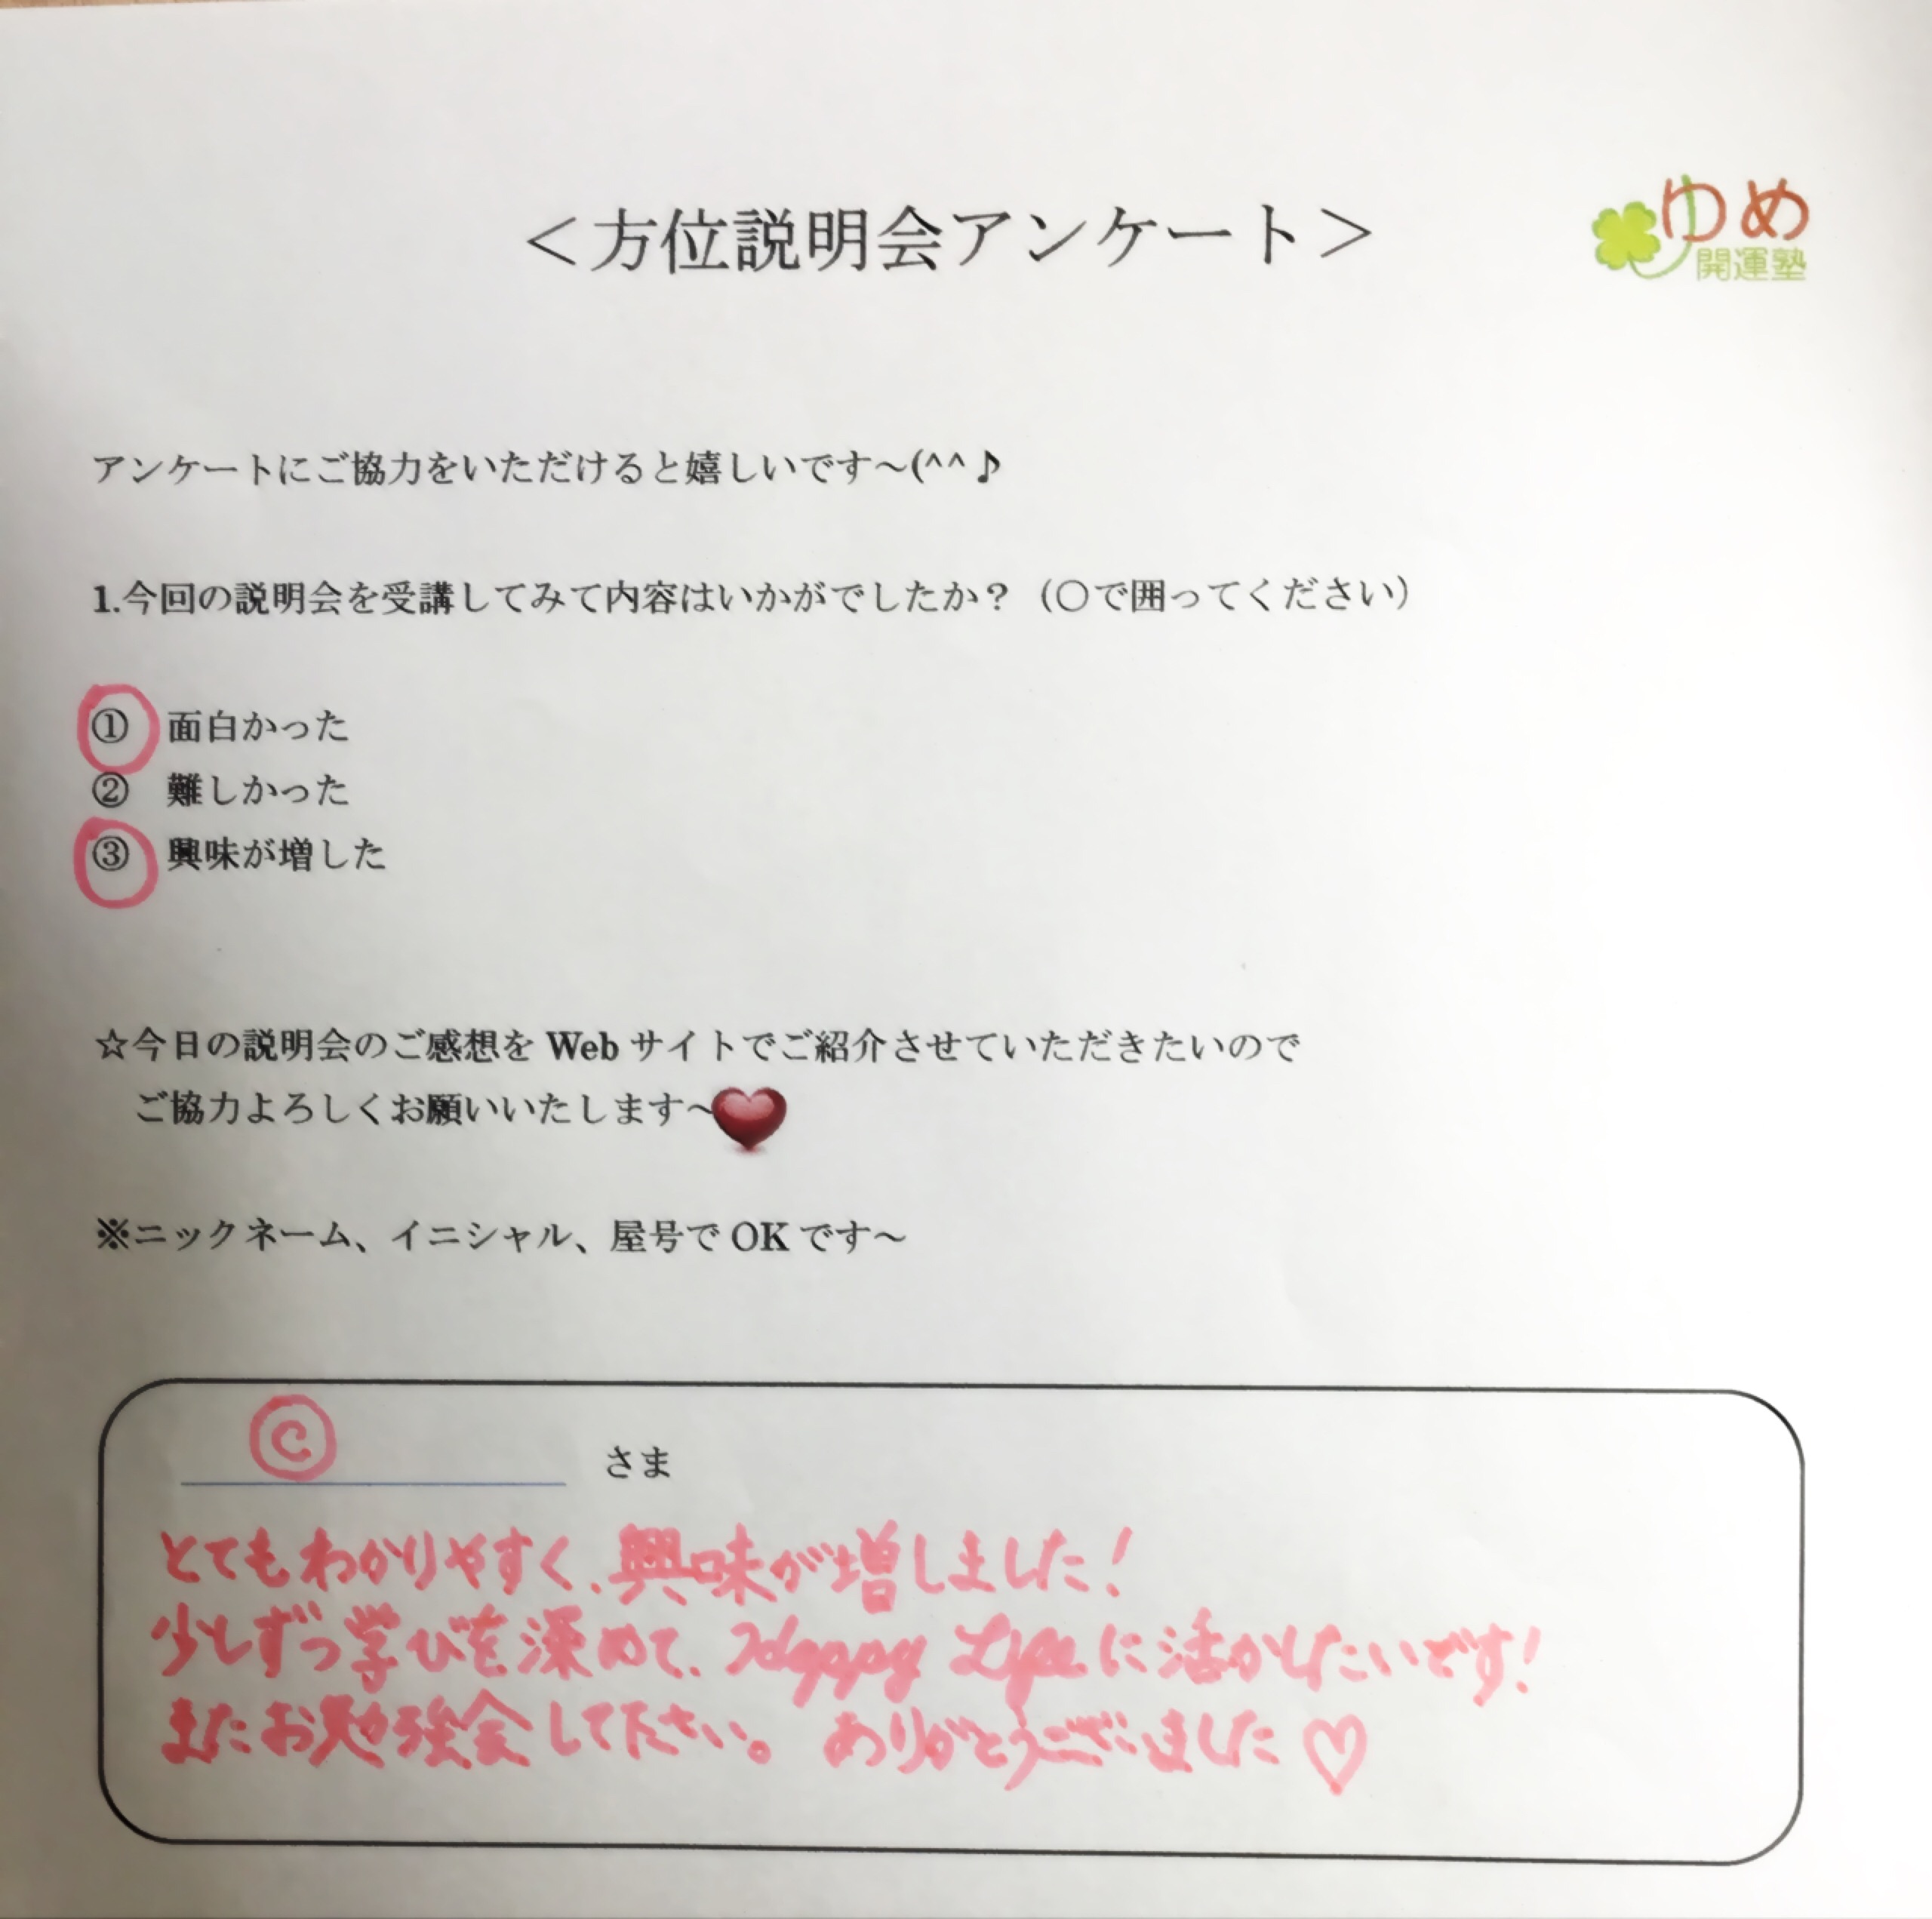 ＜方位説明会アンケート＞
ゆめ
開運塾
アンケートにご協力をいただけると嬉しいです～(^^♪
1.今回の説明会を受講してみて内容はいかがでしたか？（〇で囲ってください）
① 面白かった
② 難しかった
③ 興味が増した
☆今日の説明会のご感想を Web サイトでご紹介させていただきたいので
ご協力よろしくお願いいたします～
※ニックネーム、イニシャル、屋号で OK です～
Ⓒ さま
とてもわかりやすく、興味が増しました！
少しずつ学びを深めて、Happy Lifeに活かしたいです！
またお勉強会して下さい。ありがとうございました♡